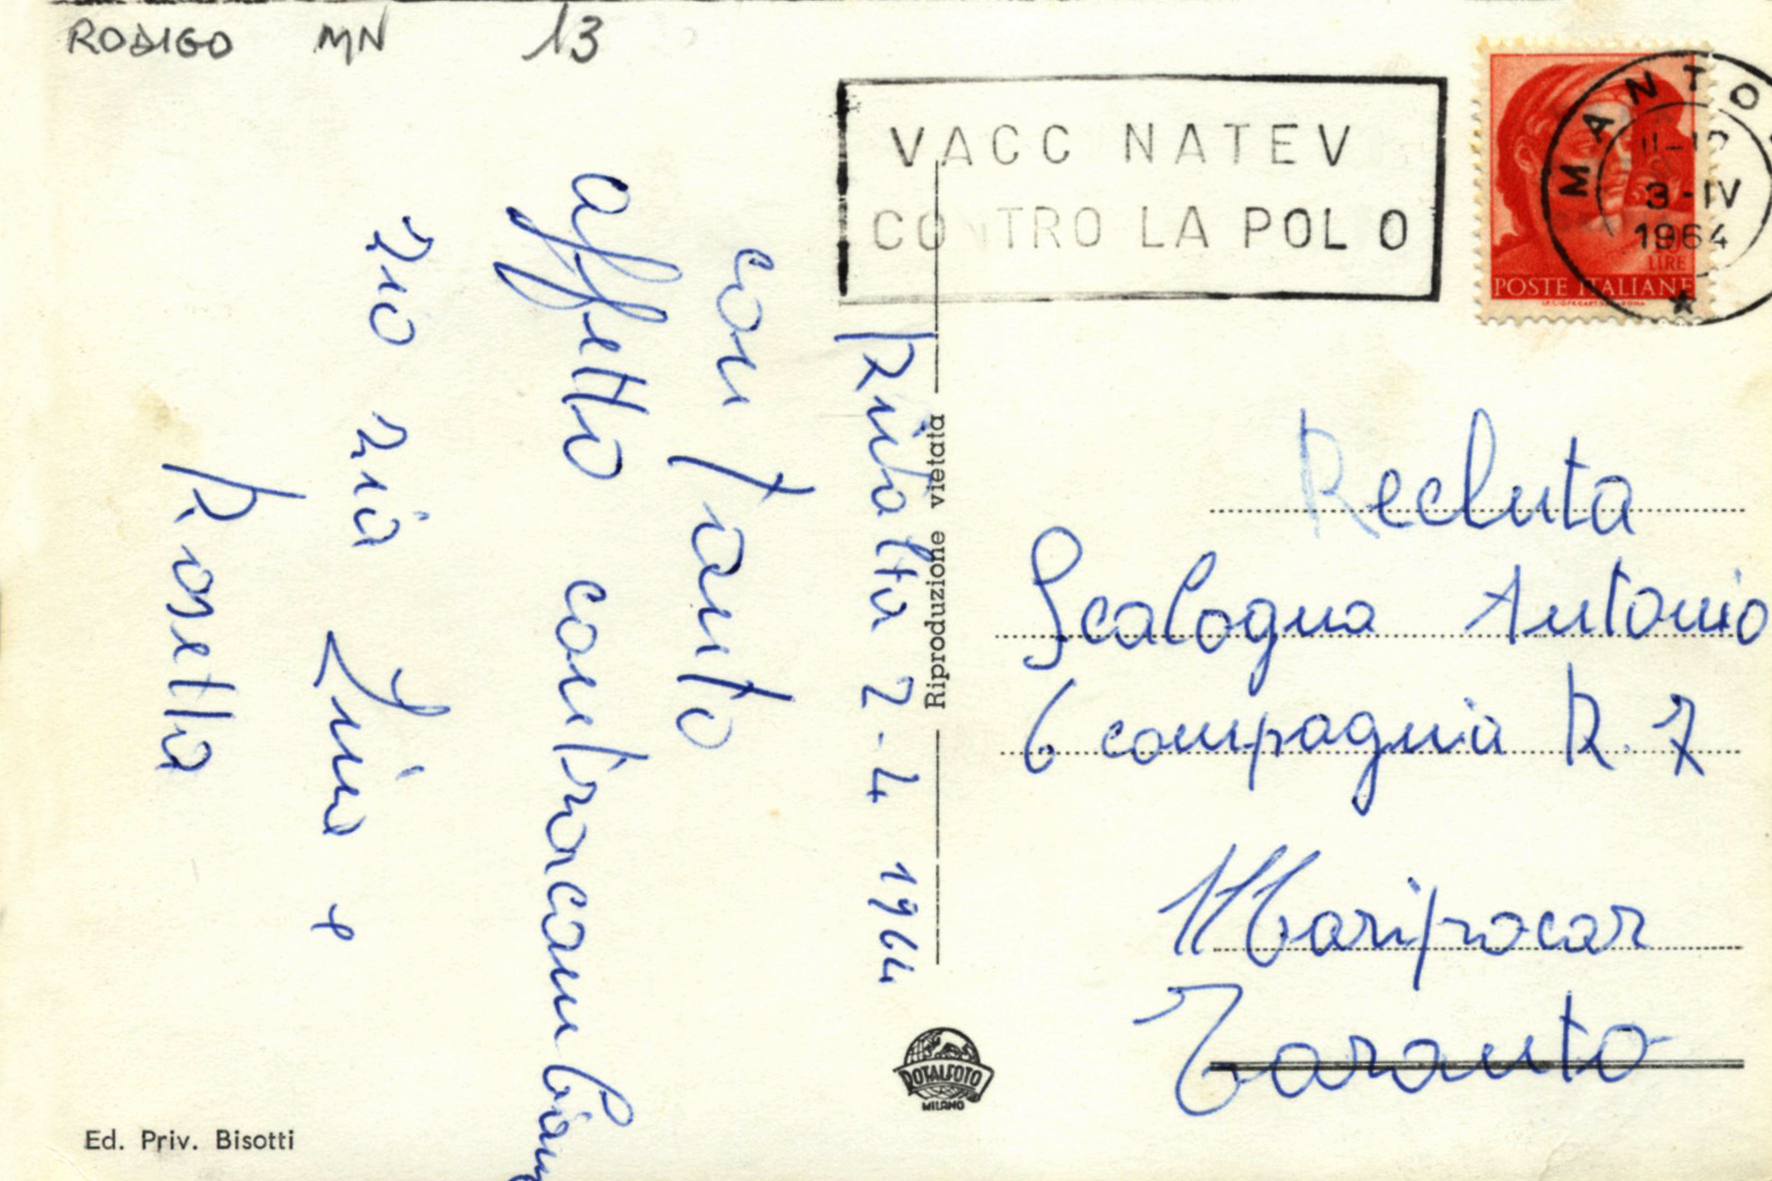 RODIGO MN 13
VACC NATEV
CONTRO LA POL O
MANTO
11-12
3-IV
1964
LIRE
POSTE ITALIANE
Rivalta 2-4 1964
con tanto
affetto contracambiamo
zio zia Lina e
Rosetta
Riproduzione vietata
Recluta
Scalogna Antonio
6 compagnia R. 7
Maripocar
Taranto
ROTALFOTO
MILANO
Ed. Priv. Bisotti